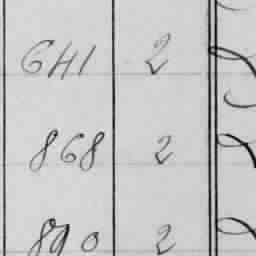 641 2
868 2
890 2